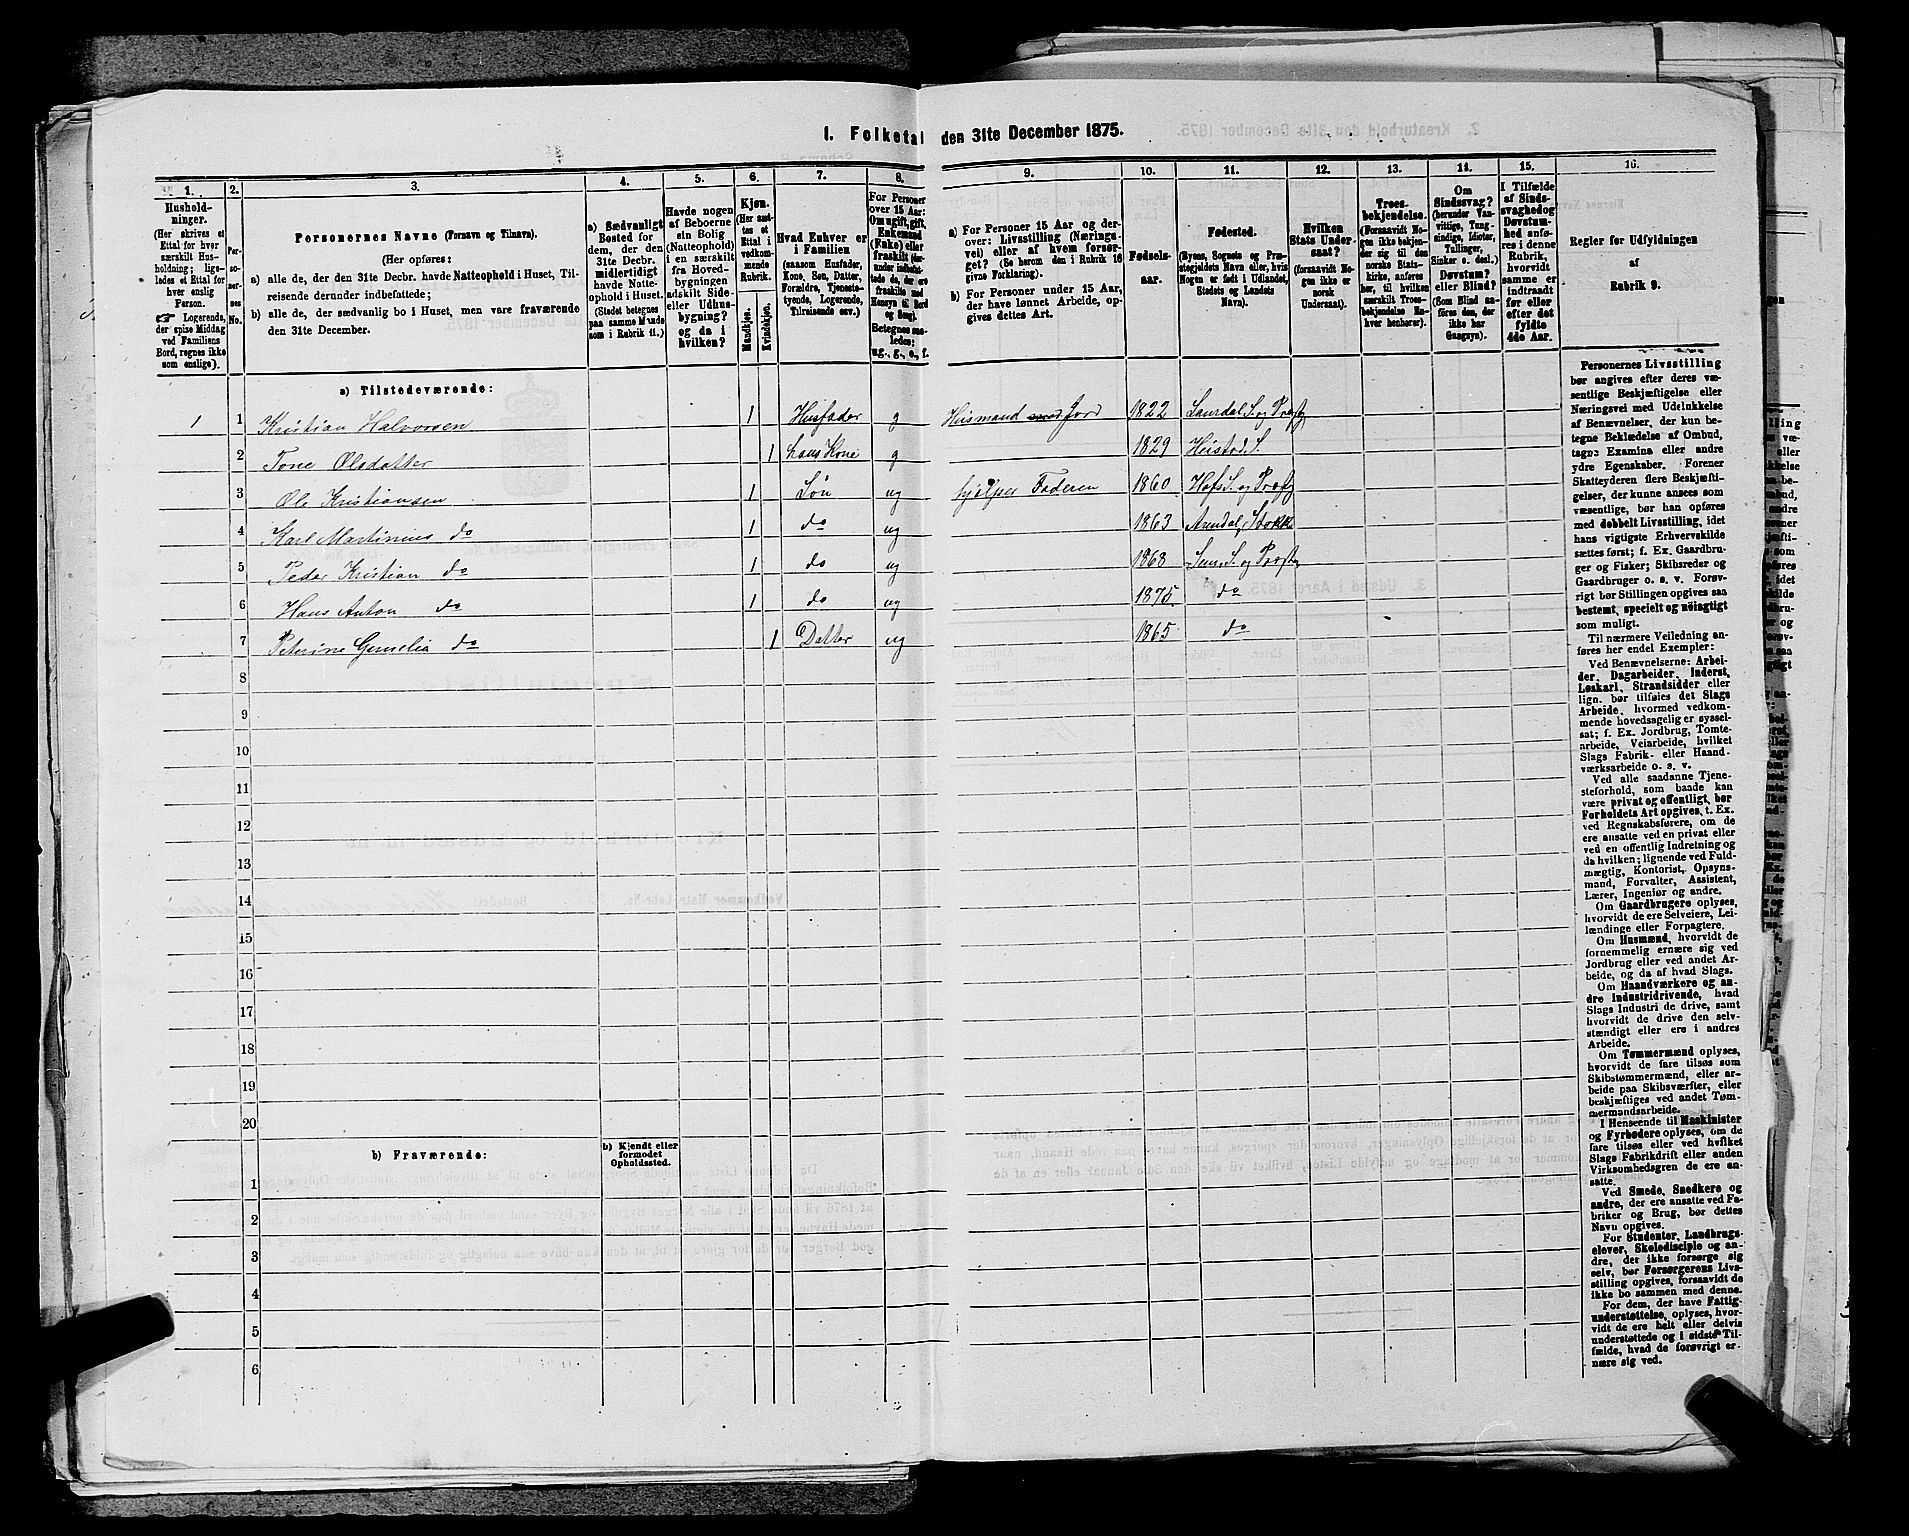 I. Folketal den 31te December 1875.
1. 2. 3. 4. 5. 6. 7. 8. 9. 10. 11. 12. 13. 14. 15. 16.
Hushold-
ninger.
(Her skrives et
Ettal for hver
særskilt Hus-
holdning; lige-
ledes et Ettal for
hver enslig
Person.
☞ Logerende,
der spise Middag
ved Familiens
Bord, regnes ikke
som enslige).
Per-
so-
ner-
nes
No.
Personernes Navne (Fornavn og Tilnavn).
(Her opføres:
a) alle de, der den 31te Decbr. havde Natteophold i Huset, Til-
reisende derunder indbefattede;
b) alle de, der sædvanlig bo i Huset, men vare fraværende
den 31te December.
a) Sædvanligt
Bosted for
dem, der den
31te Decbr.
midlertidigt
havde Natte-
ophold i Huset.
(Stedet betegnes
paa samme Maade
som i Rubrik 11.)
Havde nogen
af Beboerne
sin Bolig
(Natteophold)
i en særskilt
fra Hoved-
bygningen
adskilt Side-
eller Udhus-
bygning?
og da i
hvilken?
Kjøn.
(Her sæt-
tes et
Ettal i
vedkom-
mende
Rubrik.)
Mandkjøn.
Kvindekjøn.
Hvad Enhver er
i Familien
(saasom Husfader,
Kone, Søn, Datter,
Forældre, Tjeneste-
tyende, Logerende,
Tilreisende osv.)
For Personer
over 15 Aar:
Om ugift, gift,
Enkemand
(Enke) eller
fraskilt (der-
under indbefat-
tede de, der ere
fraskilte med
Hensyn til Bord
og Seng).
Betegnes saa-
ledes:
ug., g., e., f.
a) For Personer 15 Aar og der-
over: Livsstilling (Nærings-
vei) eller af hvem forsør-
get? (Se herom den i Rubrik 16
givne Forklaring).
b) For Personer under 15 Aar,
der have lønnet Arbeide, op-
gives dettes Art.
Fødsels-
aar.
Fødested.
(Byens, Sognets og Præ-
stegjeldets Navn eller, hvis
Nogen er født i Udlandet,
Stedets og Landets
Navn).
Hvilken
Stats Under-
saat?
(forsaavidt No-
gen ikke er
norsk
Undersaat).
Troes-
bekjendelse.
(Forsaavidt No-
gen ikke bekjen-
der sig til den
norske Stats-
kirke, anføres
her, til hvilken
særskilt Troes-
bekjendelse En-
hver henhører).
Om
Sindssvag?
(herunder Van-
vittige, Tung-
sindige, Idioter,
Tullinger,
Sinker o. desl.)
Døvstum?
eller Blind?
(Som Blind an-
føres den, der
ikke har
Gangsyn).
I Tilfælde
af Sinds-
svaghed og
Døvstum-
hed anfø-
res i denne
Rubrik,
hvorvidt
samme er
indtraadt
før eller
efter det
fyldte
4de Aar.
Regler for Udfyldningen
af
Rubrik 9.
a) Tilstedeværende:
1 1 Kristian Halvorsen 1 Husfader g Husmand med Jord 1822 Laurdal S. og Præstg
2 Tone Olsdatter 1 hans Kone g 1829 Heistad S.
3 Ole Kristiansen 1 Søn ug hjælper Faderen 1860 Hofs S. og Præstg
4 Karl Martinius do 1 do ug 1863 Arendal, Stokke
5 Peder Kristian do 1 do ug 1868 Sems S. og Præstg
6 Hans Anton do 1 do ug 1875 do
7 Peterine Gurnelia do 1 Datter ug 1865 do
8
9
10
11
12
13
14
15
16
17
18
19
20
b) Fraværende:
b) Kjendt eller
formodet
Opholdssted.
1
2
3
4
5
6
Personernes Livsstilling
bør angives efter deres væ-
sentlige Beskjæftigelse eller
Næringsvei med Udelukkelse
af Benævnelser, der kun be-
tegne Beklædelse af Ombud,
tagne Examina eller andre
ydre Egenskaber. Forener
Skatteyderen flere Beskjæfti-
gelser, der kunne ansees som
væsentlige, bør han opføres
med dobbelt Livsstilling, idet
hans vigtigste Erhvervskilde
sættes først; f. Ex. Gaardbru-
ger og Fisker; Skibsreder og
Gaardbruger o. s. v. Forøv-
rigt bør Stillingen opgives saa
bestemt, specielt og nøiagtigt
som muligt.
Til nærmere Veiledning an-
føres her endel Exempler:
Ved Benævnelserne: Arbei-
der, Dagarbeider, Inderst,
Løskarl, Strandsidder eller
lign. bør tilføies det Slags
Arbeide, hvormed vedkom-
mende hovedsagelig er syssel-
sat; f. Ex. Jordbrug, Tomte-
arbeide, Veiarbeide, hvilket
Slags Fabrik- eller Haand-
værksarbeide o. s. v.
Ved alle saadanne Tjene-
steforhold, som baade kan
være privat og offentligt, bør
Forholdets Art opgives, t. Ex.
ved Regnskabsførere, om de
ere ansatte ved en privat eller
ved en offentlig Indretning og
da hvilken; lignende ved Fuld-
mægtig, Kontorist, Opsyns-
mand, Forvalter, Assistent,
Lærer, Ingeniør og andre.
Om Gaardbrugere oplyses,
hvorvidt de ere Selveiere, Lei-
lændinge eller Forpagtere.
Om Husmænd, hvorvidt de
fornemmelig ernære sig ved
Jordbrug eller ved andet Ar-
beide, og da af hvad Slags.
Om Haandværkere og an-
dre Industridrivende, hvad
Slags Industri de drive, samt
hvorvidt de drive den selv-
stændigt eller ere i andres
Arbeide.
Om Tømmermænd oplyses,
hvorvidt de fare tilsøs som
Skibstømmermænd, eller ar-
beide paa Skibsværfter, eller
beskjæftiges ved andet Tøm-
mermandsarbeide.
I Henseende til Maskinister
og Fyrbødere oplyses, om de
fare tilsøs eller ved hvilket
Slags Fabrikdrift eller anden
Virksomhedsgren de ere an-
satte.
Ved Smede, Snedkere og
andre, der ere ansatte ved Fa-
briker og Brug, bør dettes
Navn opgives.
For Studenter, Landbrugs-
elever, Skoledisciple og an-
dre, der ikke forsørge sig
selv, bør Forsørgerens Livs-
stilling opgives, forsaavidt de
ikke bo sammen med denne.
For dem, der have Fattig-
understøttelse, oplyses, hvor-
vidt de ere helt eller delvis
understøttede og i sidste Til-
fælde, hvad de forøvrigt er-
nære sig ved.